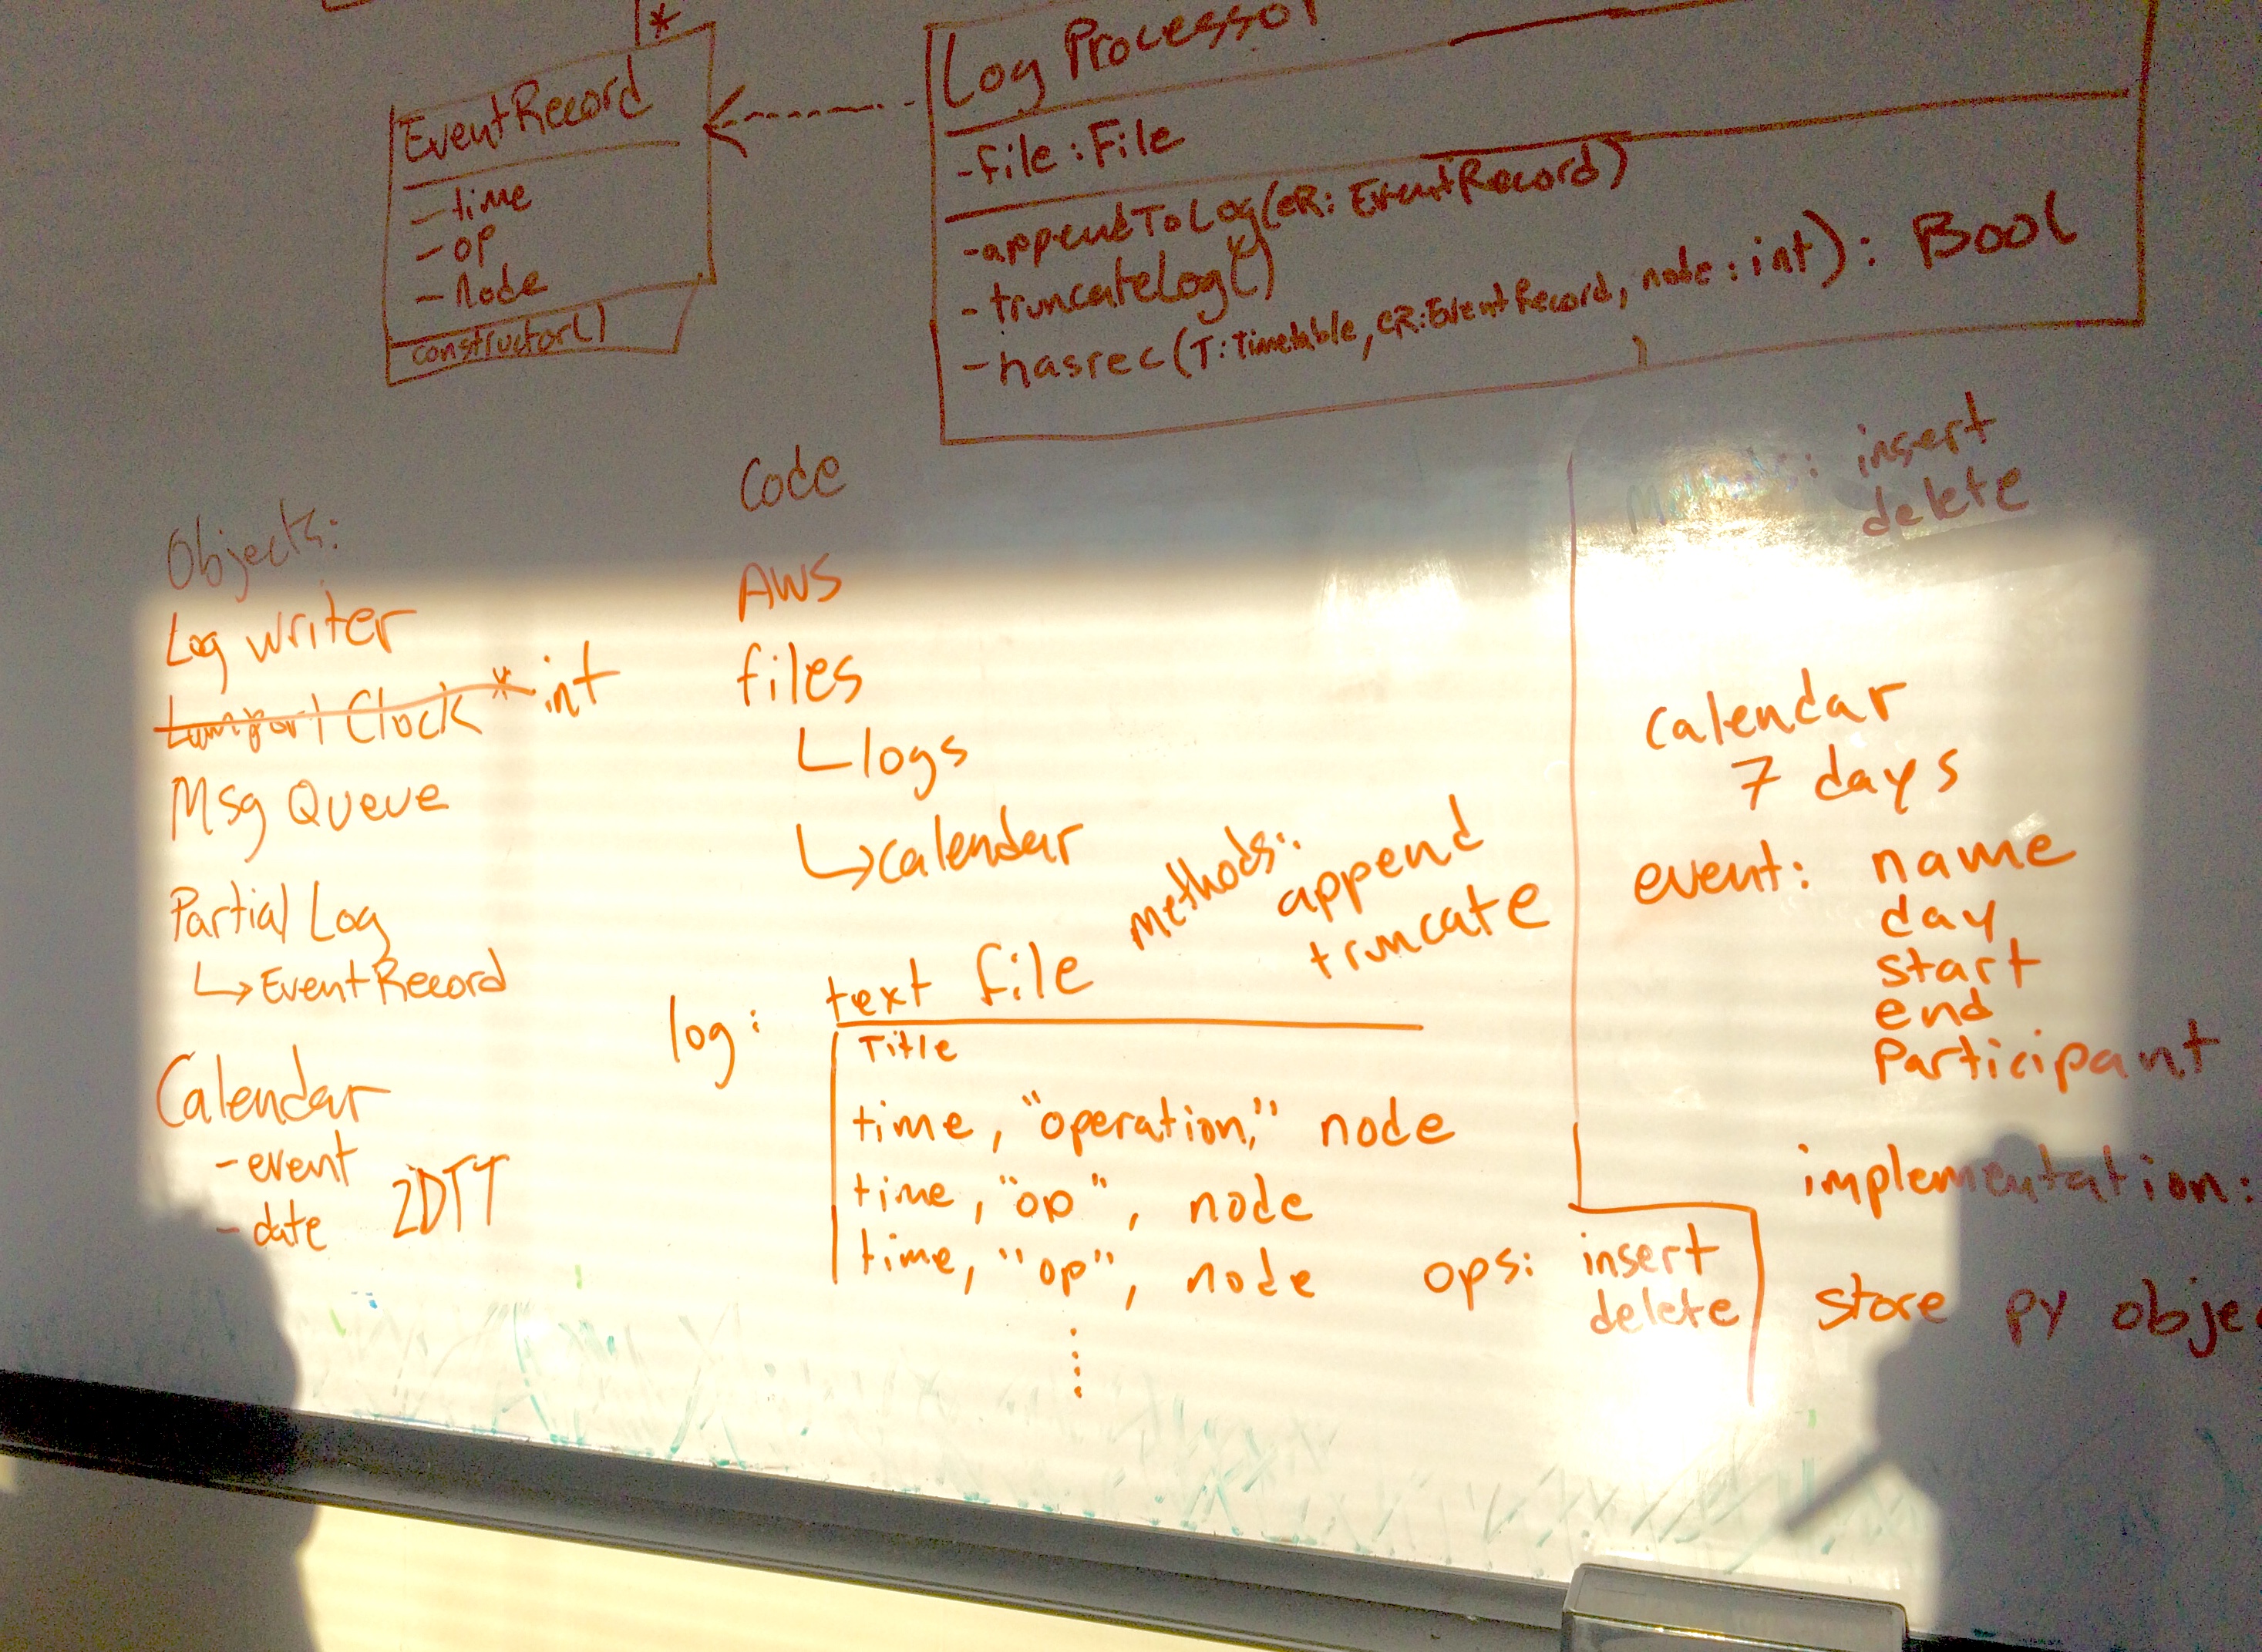 *
EventRecord
-time
-op
-Node
constructor()
Log Processor
-file:File
-appendToLog(eR: EventRecord)
-truncateLog()
-hasrec(T:Timetable, eR:EventRecord, node:int): Bool
Objects:
Log writer
Lamport Clock * int
Msg Queue
Partial Log
↳EventRecord
Calendar
-event
-date
2DTT
Code
AWS
files
└logs
↳calendar
methods:
append
truncate
log:
text file
Title
time, "operation," node
time, "op", node
time, "op", node
ops: insert
delete
insert
delete
calendar
7 days
event: name
day
start
end
Participant
implementation:
store py obje